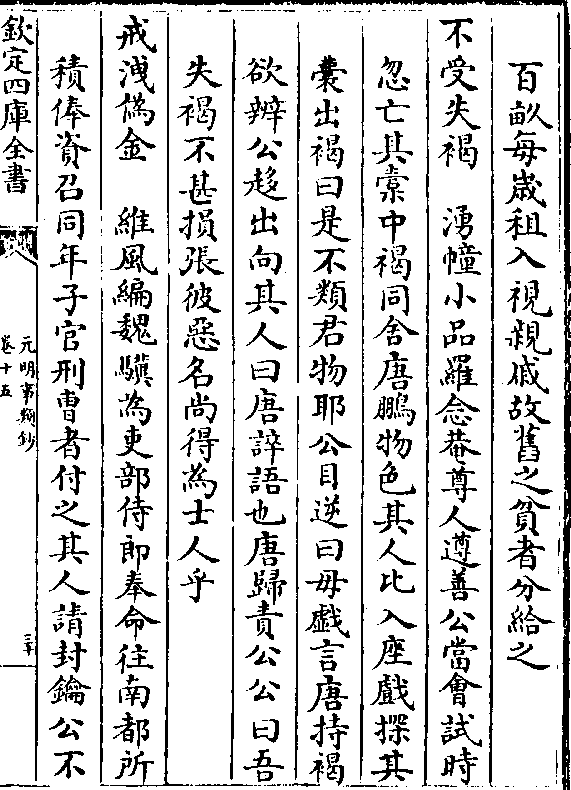 百畝每歲租入視親戚故舊之貧者分給之
不受失褐　湧幢小品羅念菴尊人遵善公當會試時
忽亡其橐中褐同舍唐鵬物色其人比入座戲探其
囊出褐曰是不類君物耶公目逆曰毋戲言唐持褐
欲辨公趍出向其人曰唐誶語也唐歸責公公曰吾
失褐不甚損張彼惡名尚得為士人乎
戒洩偽金　維風編魏驥為吏部侍郎奉命往南都所
積俸資召同年子官刑曹者付之其人請封鑰公不
欽定四庫全書
元明事類鈔
卷十五